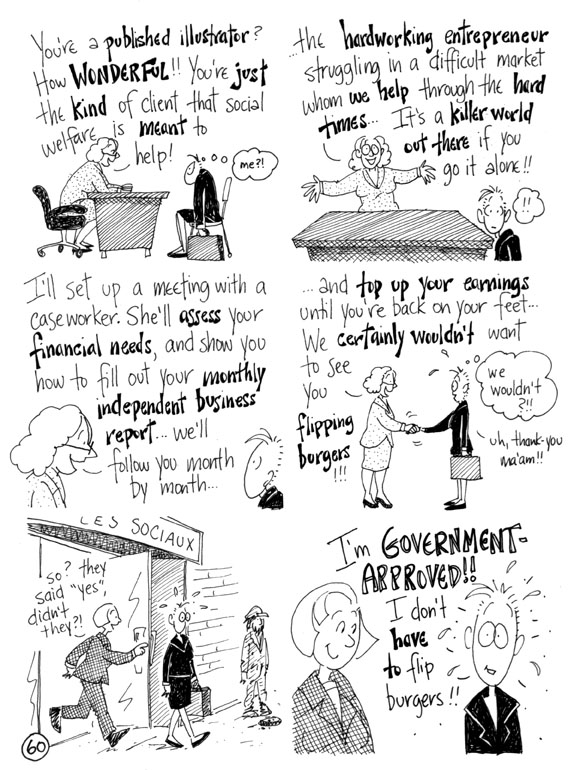 You're a published illustrator?
How WONDERFUL!! You're just
the kind of client that social
welfare is meant to
help!
me?!
...the hardworking entrepreneur
struggling in a difficult market
whom we help through the hard
times... It's a killer world
out there if you
go it alone!!
!!
I'll set up a meeting with a
caseworker. She'll assess your
financial needs, and show you
how to fill out your monthly
independent business
report... we'll
follow you month
by month...
...and top up your earnings
until you're back on your feet...
We certainly wouldn't want
to see
you
flipping
burgers
!!!
we
wouldn't
?!!
uh, thank-you
ma'am!!
LES SOCIAUX
so? they
said "yes",
didn't
they?!
I'm GOVERNMENT-
APPROVED!!
I don't
have
to flip
burgers!!
60